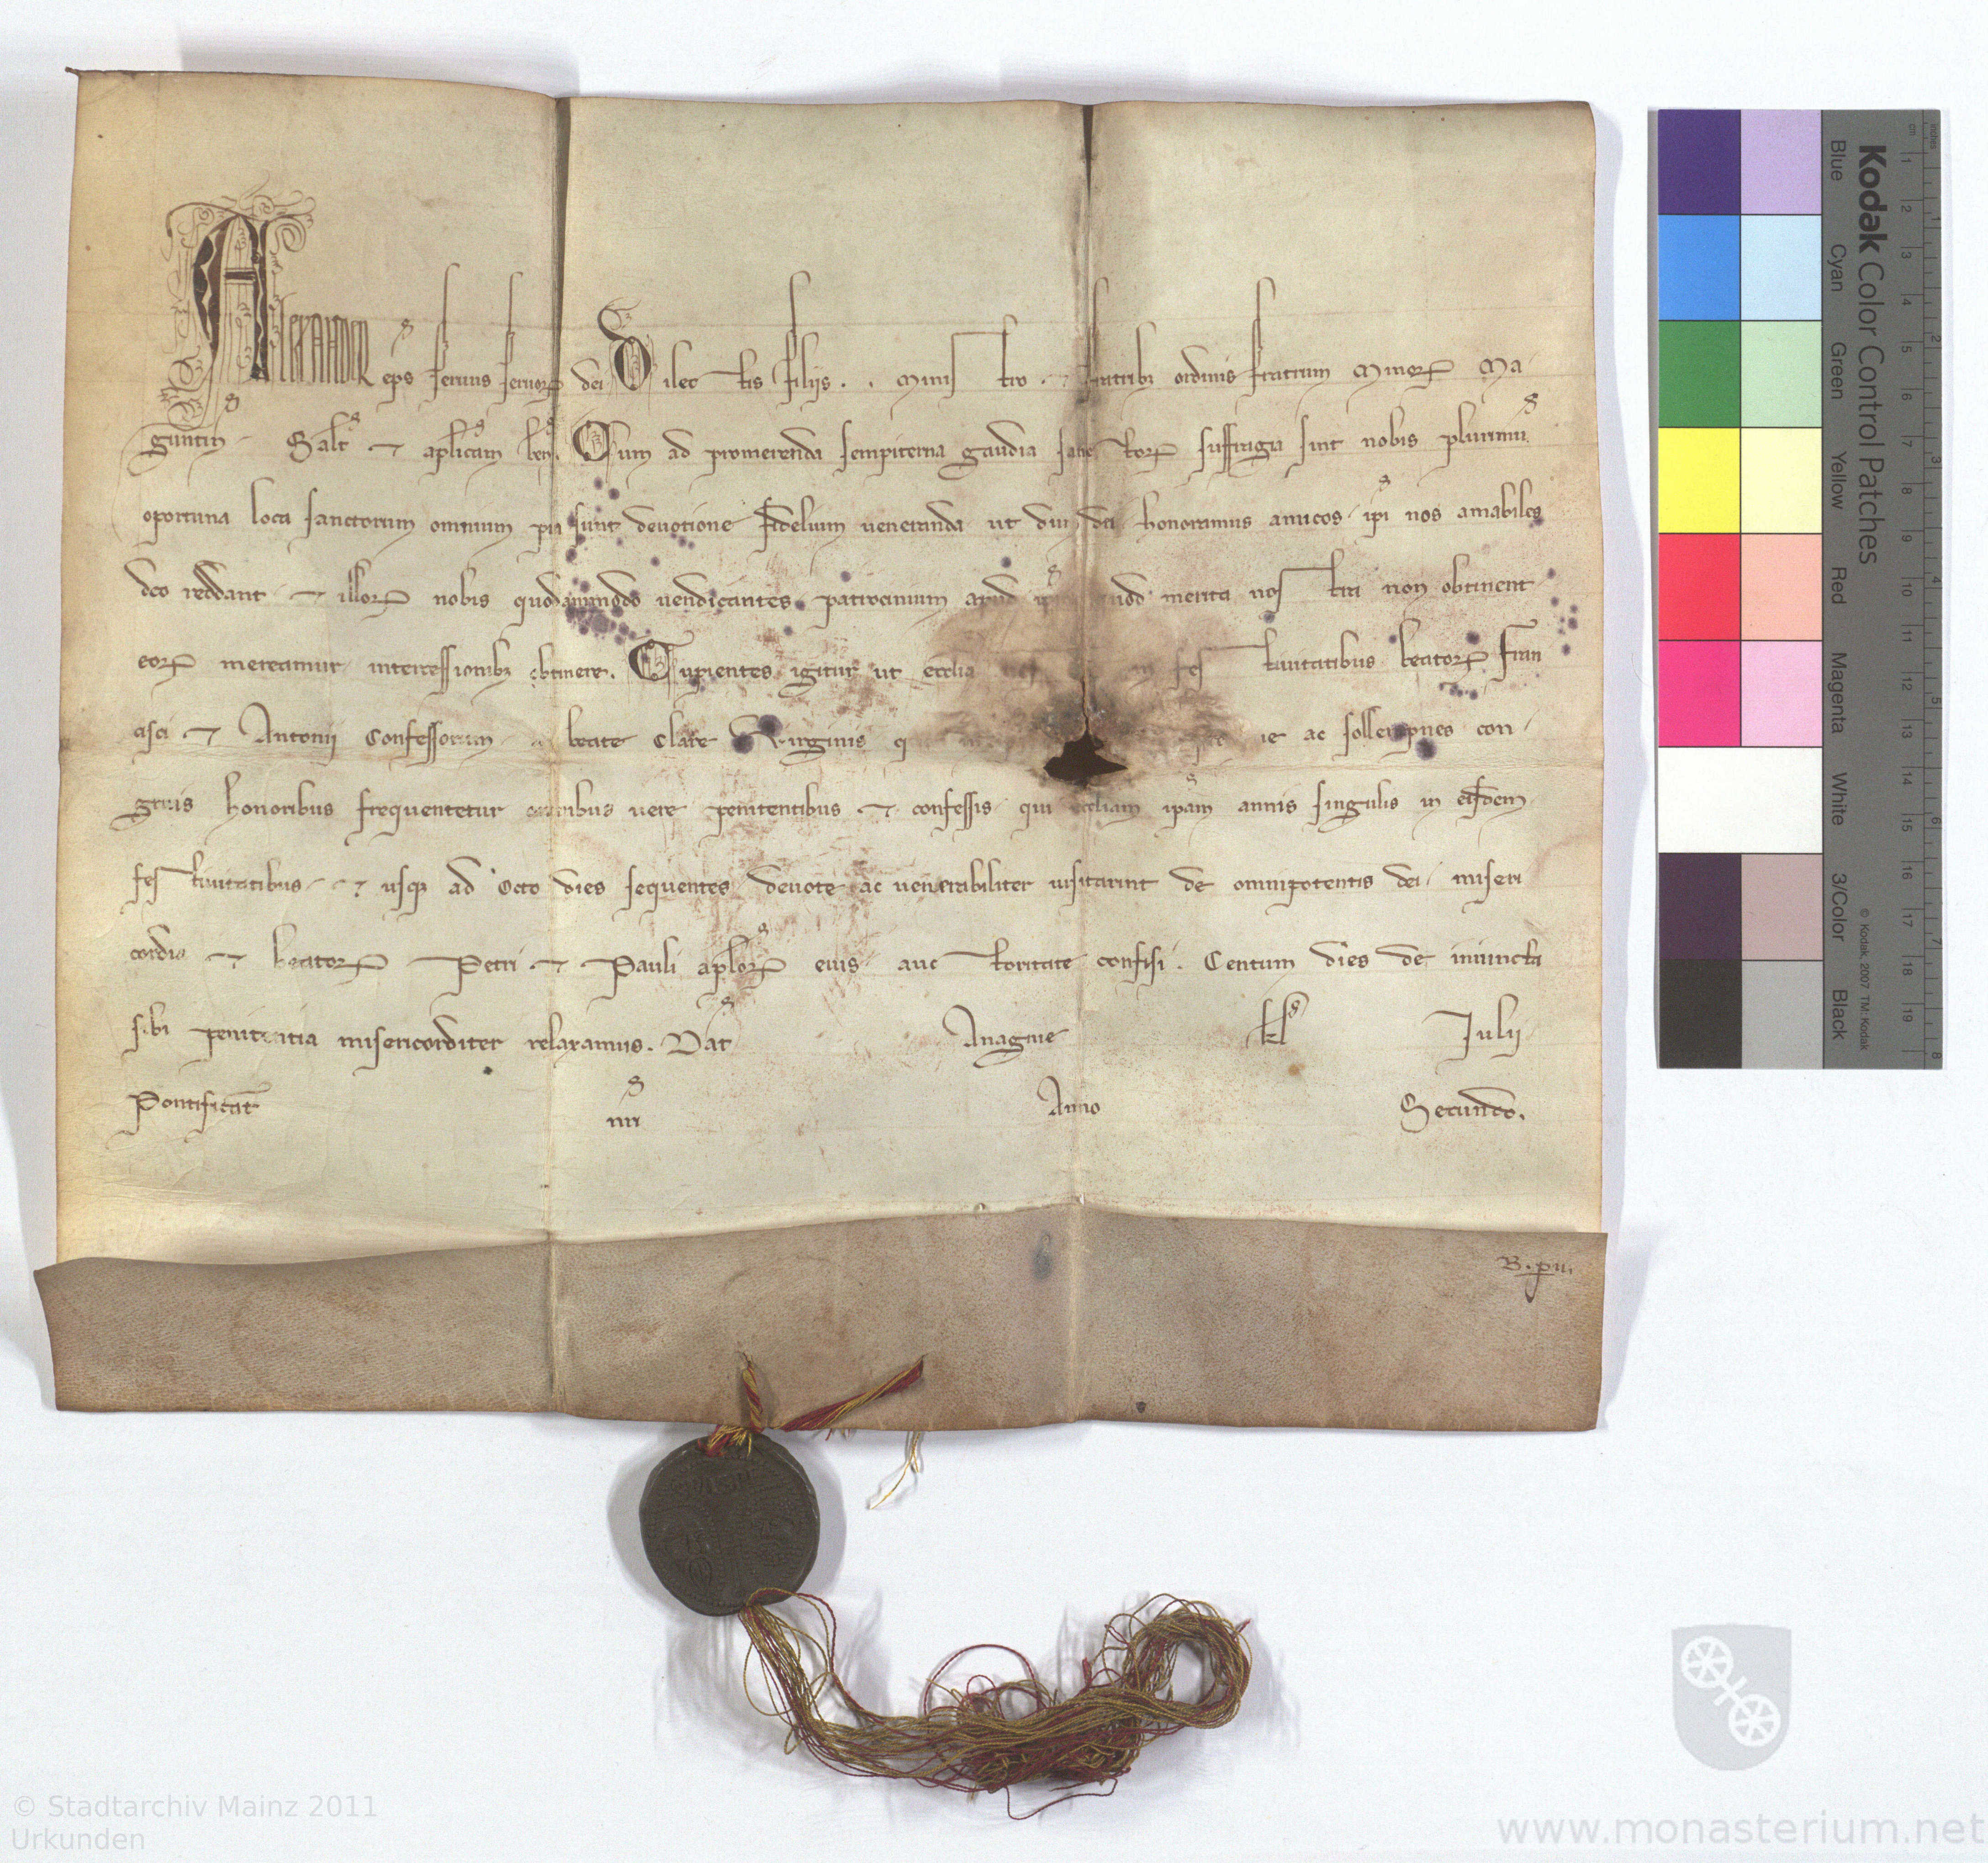 ALEXANDER ep̄s seruus seruoꝝ dei Dilectis filijs . . Ministro . ⁊ fratribꝫ ordinis fratrum Minoꝝ Ma-
guntin̄ Salt̄ ⁊ aplicam ben̄. Cum ad promerenda sempiterna gaudia sanctoꝝ suffragia sint nobis plurimū
oportuna loca sanctorum omnium pia sunt deuotione fidelium ueneranda ut dum dei honoramus amicos ip̄i nos amabiles
deo reddant ⁊ illoꝝ nobis quodammodo uendicantes patrocinium apud quod merita nostra non obtinent
eoꝝ mereamur intercessionibꝫ obtinere. Cupientes igitur ut ecclia festiuitatibus beatoꝝ Fran
cisci ⁊ Antonij Confessorum beate Clare Virginis ac sollempnes con-
gruis honoribus frequentetur omnibus uere penitentibus ⁊ confessis qui eccliam ip̄am annis singulis in eisdem
festiuitatibus ⁊ usqꝫ ad octo dies sequentes deuote ac uenerabiliter uisitarint de omnipotentis dei miseri
cordia ⁊ beatoꝝ Petri ⁊ Pauli aploꝝ eius auctoritate confisi . Centum dies de iniuncta
sibi penitentia misericorditer relaxamus. Dat̄ Anagnie kl̄ Julij
Pontificat̄ nri Anno Secundo.
B. pm.
Kodak Color Control Patches
Blue Cyan Green Yellow Red Magenta White 3/Color Black
© Kodak, 2007 TM: Kodak
cm 1 2 3 4 5 6 7 8 9 10 11 12 13 14 15 16 17 18 19
inches 1 2 3 4 5 6 7 8
© Stadtarchiv Mainz 2011
Urkunden
www.monasterium.net